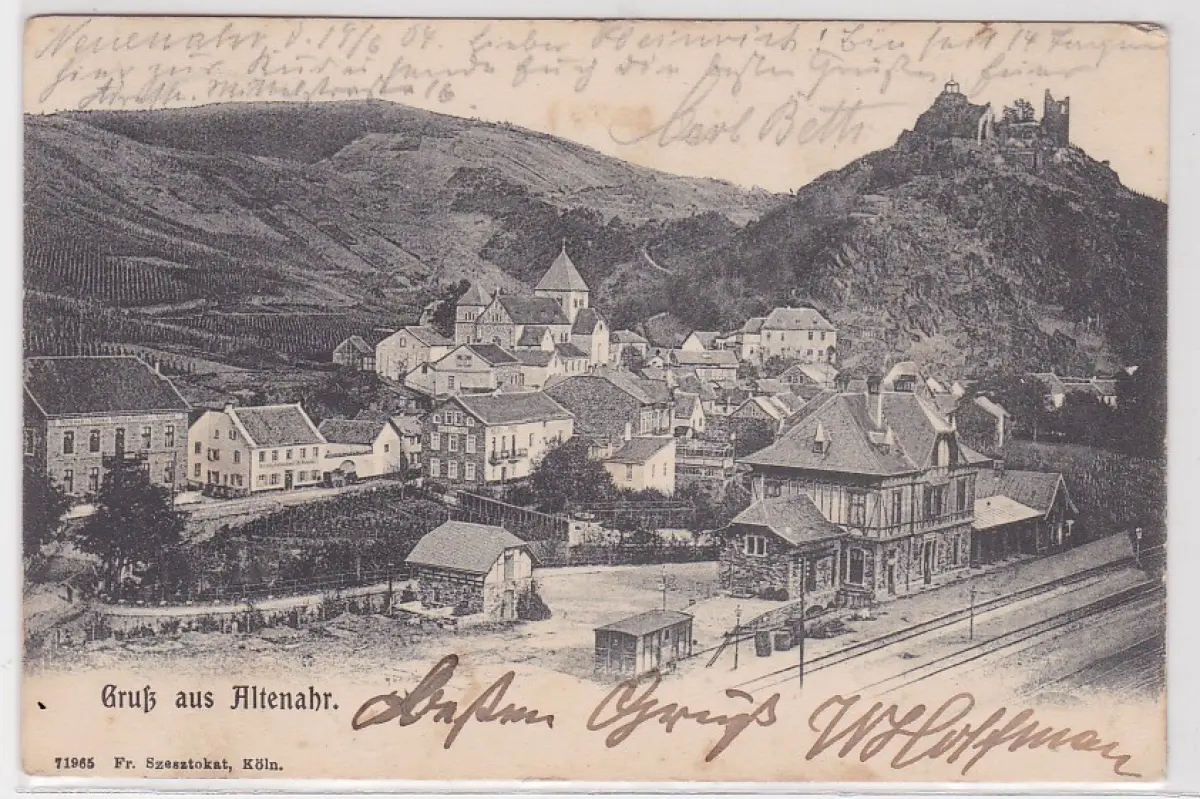 Neuenahr d. 19/6 04. Lieber Heinrich! Bin seit 14 Tagen
hier zur Kur u sende Euch die besten Grüße
Adresse. Mittelstraße 16.
Carl Beth
Gruß aus Altenahr.
Besten Gruß WHoffman
71965 Fr. Szesztokat, Köln.